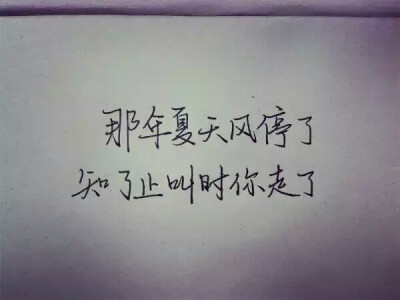 那年夏天风停了
知了止叫时你走了